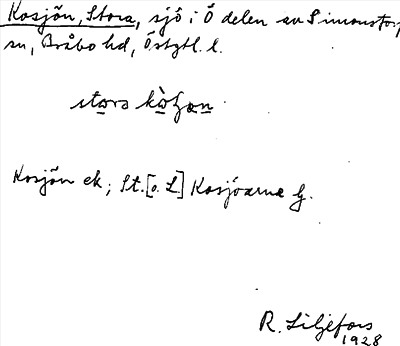 Kosjön, Stora, sjö i Ö delen av Simonstorps
sn, Bråbo hd, Östgtl. l.
stora
Kosjön ek; St. [o. L.] Kosjöarna G.
R. Liljefors
1928